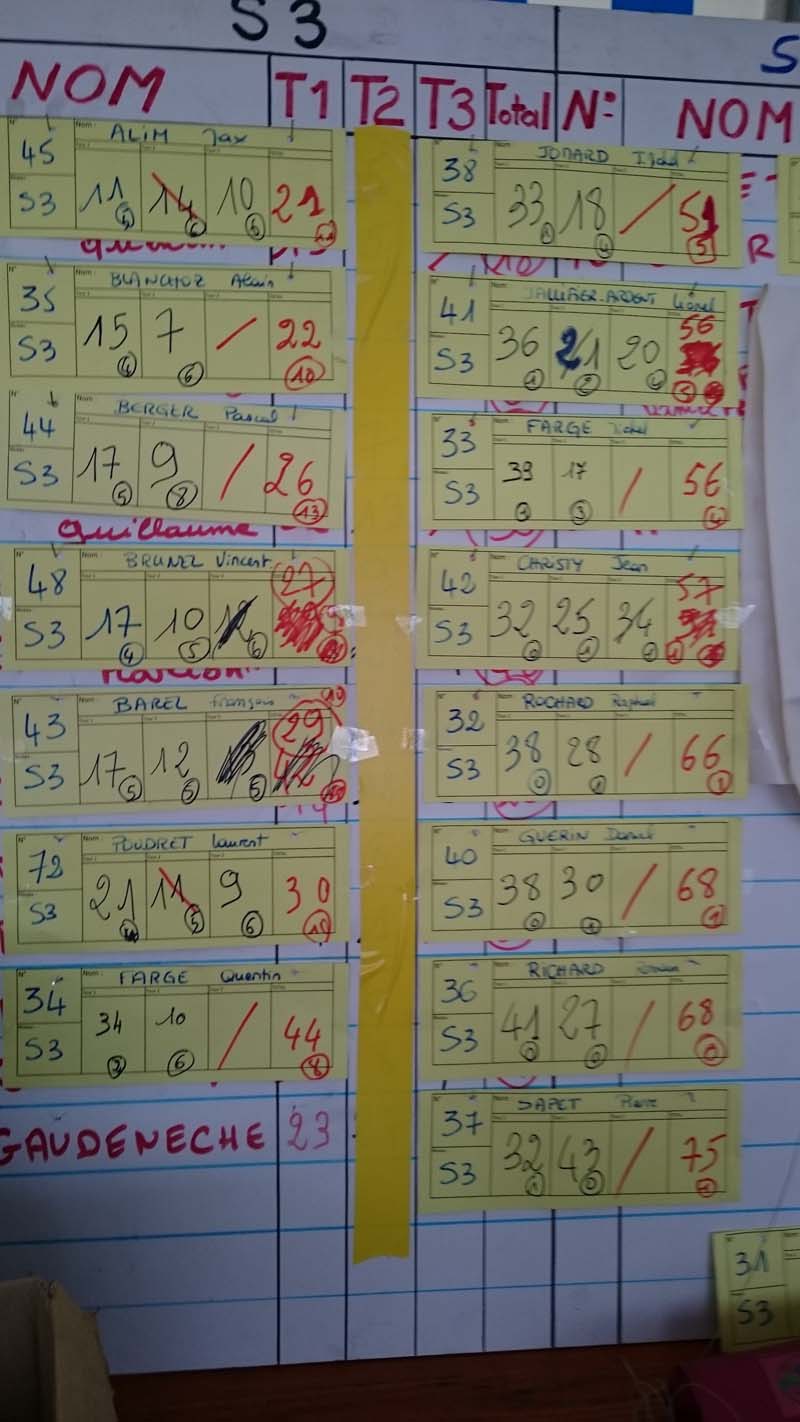 S3
S
NOM T1 T2 T3 Total N° NOM
45 Nom: ALIM Jax
S3 11 5 14 6 10 6 21
35 Nom: BLANCHOZ Alain
S3 15 4 7 6 / 22 10
44 Nom: BERGER Pascal
S3 17 5 9 8 / 26 13
Guillaume
48 Nom: BRUNEL Vincent
S3 17 4 10 5 6 27
43 Nom: BAREL François
S3 17 5 12 5 5 29 10
72 Nom: POUDRET Laurent
S3 21 11 5 9 6 30
34 Nom: FARGE Quentin
S3 34 10 6 / 44 8
GAUDENECHE 23
38 JOMARD
S3 33 18 / 51 5
41 Lionel
S3 36 1 21 2 20 56
33 FARGE
S3 39 17 3 / 56 4
42 CHRISTY Jean
S3 32 25 1 34 57
32 ROCHARD Raphael
S3 38 0 28 1 / 66 1
40 GUERIN Daniel
S3 38 0 30 1 / 68 1
36 RICHARD
S3 41 0 27 0 / 68 0
37 SAPET Pierre
S3 32 1 43 0 / 75 1
31
S3